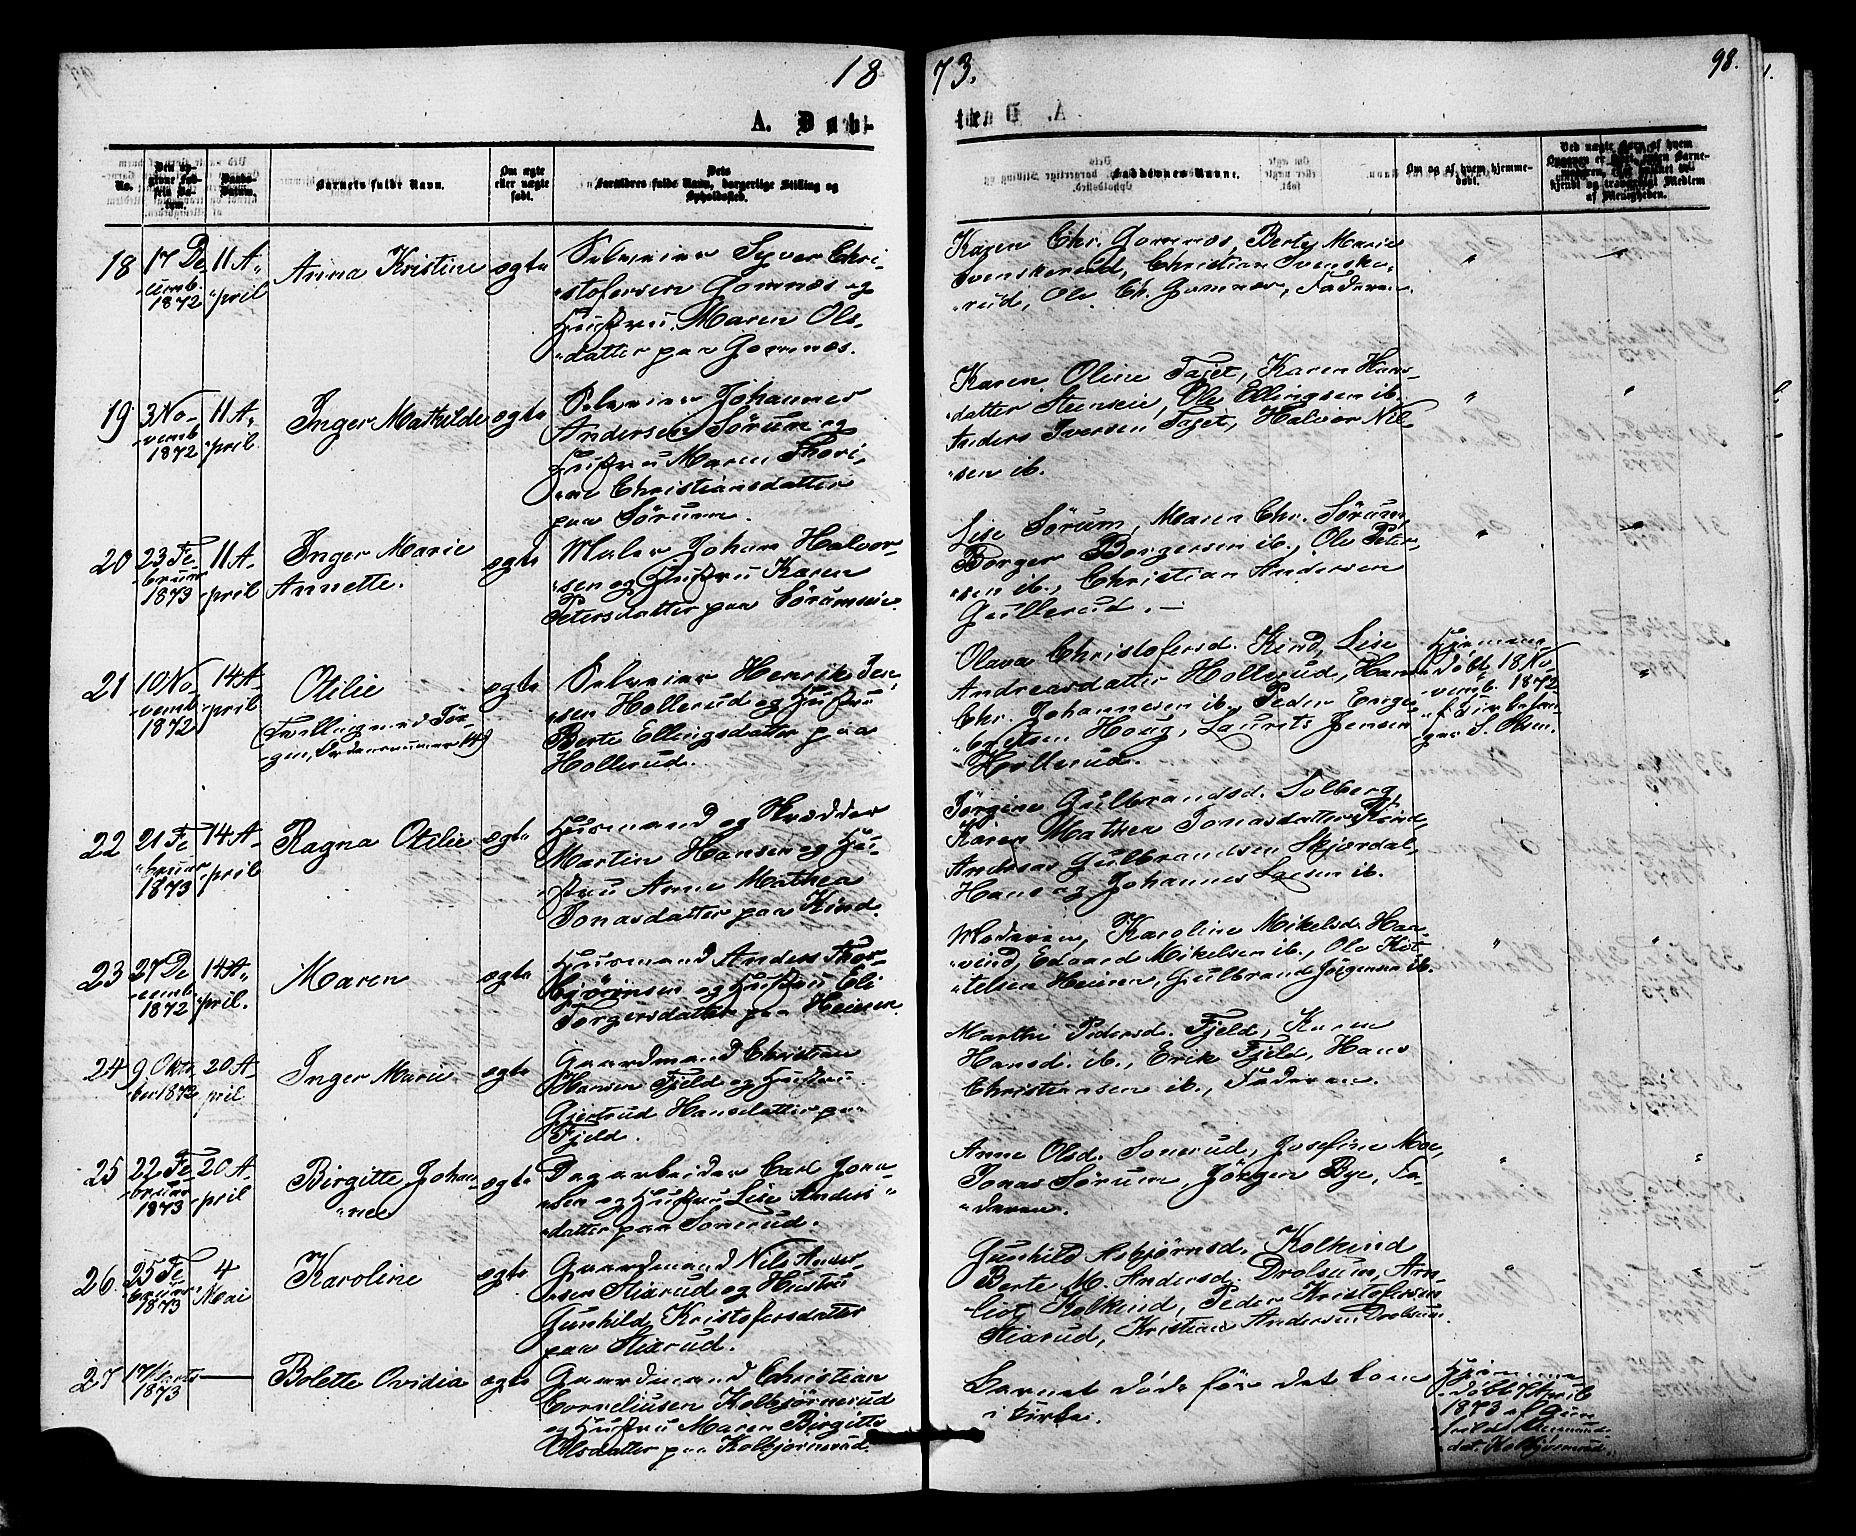 18
73.
98.
A. Døb-
No.
Barnets fulde Navn.
Om ægte
eller uægte
født.
Forældres fulde Navn, borgerlige Stilling og
Opholdssted.
Faddernes Navne.
Om og af hvem hjemme-
døbt.
18
17 De-
cemb.
1872
11 A-
pril
Anna Kristine
ægte
Selveier Syver Chri-
stofersen Gomnæs og
Hustru Maren Ols-
datter paa Gomnæs.
Karen Chr. Gomnæs, Berte Marie
Svenskerud, Christian Svenske-
rud, Ole Ch. Gomnæs, Faderen.
"
19
3 No-
vemb
1872
11 A-
pril
Inger Mathilde
ægte
Selveier Johannes
Andersen Sørum og
Hustru Maren Thori-
ne Christiansdatter
paa Sørum.
Karen Oline Faget, Karen Hans-
datter Steinseie, Ole Ellingsen ib.
Anders Iversen Faget, Halvor Nil-
sen ib.
"
"
20
23 Fe-
bruar
1873
11 A-
pril
Inger Marie
Annette.
ægte
Maler Johan Halvor-
sen og Hustru Karen
Petersdatter paa Sørumseie.
Lise Sørum, Maren Chr. Sørum,
Borger Borgersen ib., Ole Peter-
sen ib., Christian Andersen
Gullerud. —
"
"
21
10 No-
vemb
1872
14 A-
pril
Otilie
(Tvilling med Jør-
gen, Ordensnummer 14)
ægte
Selveier Henrik Jen-
sen Hollerud og Hustru
Berte Ellingsdatter paa
Hollerud.
Olava Christofersd. Kind, Lise
Andreasdatter Hollerud, Hans
Chr. Johannesen ib., Peder Enge-
bretsen Houg, Laurits Jensen
Hollerud.
Hjemme-
døbt 18 No-
vemb. 1872
"
22
21 Fe-
bruar
1873
14 A-
pril
Ragna Otilie
ægte
Husmand og Skrædder
Martin Hansen og Hu-
stru Anne Mathea
Jonasdatter paa Kind.
Jørgine Gulbrandsd. Solberg,
Karen Mathea Jonasdatter Kind,
Andreas Gulbrandsen Skjærdal,
Hans og Johannes Larsen ib.
23
27 De-
cemb
1872
14 A-
pril.
Maren
ægte
Husmand Anders Thor-
bjørnsen og Hustru Eli
Torgersdatter paa Heieren
Moderen, Karoline Mikelsd. Har-
vind, Edvard Mikelsen ib., Ole Ket-
telsen Heieren, Gulbrand Jørgensen ib.
"
"
24
9 Okto-
ber 1872
20 A-
pril
Inger Marie
ægte
Gaardmand Christian
Hansen Fjeld og Hustru
Gjertrud Hansdatter paa
Fjeld.
Marthe Pedersd. Fjeld, Karen
Hansd. ib., Erik Fjeld, Hans
Christiansen ib., Faderen.
25
22 Fe-
bruar
1873
20 A-
pril
Birgitte Johan-
nee
ægte
Dagarbeider Carl Jona-
sen og Hustru Lise Anders-
datter paa Sonerud.
Anne Olsd. Sonerud, Josefine Moe,
Jonas Sørum, Jørgen Bye, Fa-
deren.
"
"
26.
25 Fe-
bruar
1873
4
Mai
Karoline
ægte
Gaardmand Nils Ander-
sen Stiarud og Hustru
Gunhild Kristofersdatter
paa Stiarud.
Gunhild Asbjørnsd. Kolkind
Berte M. Andersd. Drolsum, Arn-
liot Kolkind, Peder Kristofersen
Stiarud, Kristian Andersen Drolsum.
"
"
27
17 Marts
1873
Bolette Ovidia
ægte
Gaardmand Christian
Corneliusen Kolbjørnerud
og Hustru Maren Birgitte
Olsdatter paa Kolbjørnsrud.
Barnet døde før det kom
i Kirke.
Hjemme-
døbt 7 April
1873 af Gun-